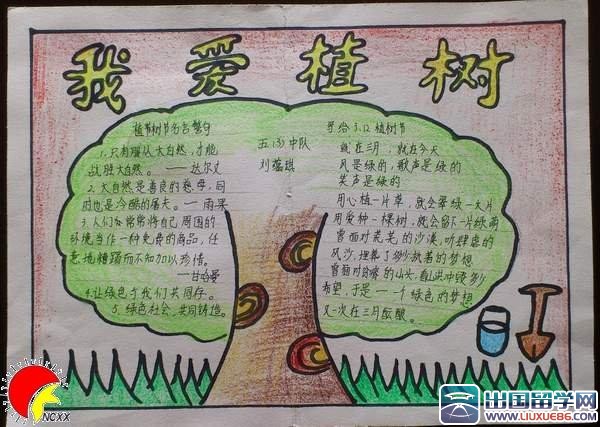 我爱植树
植树节名言警句
1.只有顺从大自然,才能
战胜大自然。——达尔文
2.大自然是善良的慈母,同
时也是冷酷的屠夫。—雨果
3.人们常常将自己周围的
环境当作一种免费的商品,任
意地糟蹋而不知加以珍惜。
—甘哈曼
4.让绿色与我们共同存。
5.绿色社会、共同铸造。
五(3)中队
刘蕴琪
写给3.12植树节
就在三月,就在今天
风是绿的,歌声是绿的
笑声是绿的
用心植一片草,就会翠绿一大片
用爱种一棵树,就会留下一片绿荫
曾面对茫茫的沙漠,听肆虐的
风沙,埋葬了多少执著的梦想
曾面对贫瘠的山头,看山洪冲毁多少
希望,于是——个绿色的梦想
又一次在三月酝酿。
NCXX
出国留学网
www.liuxue86.com